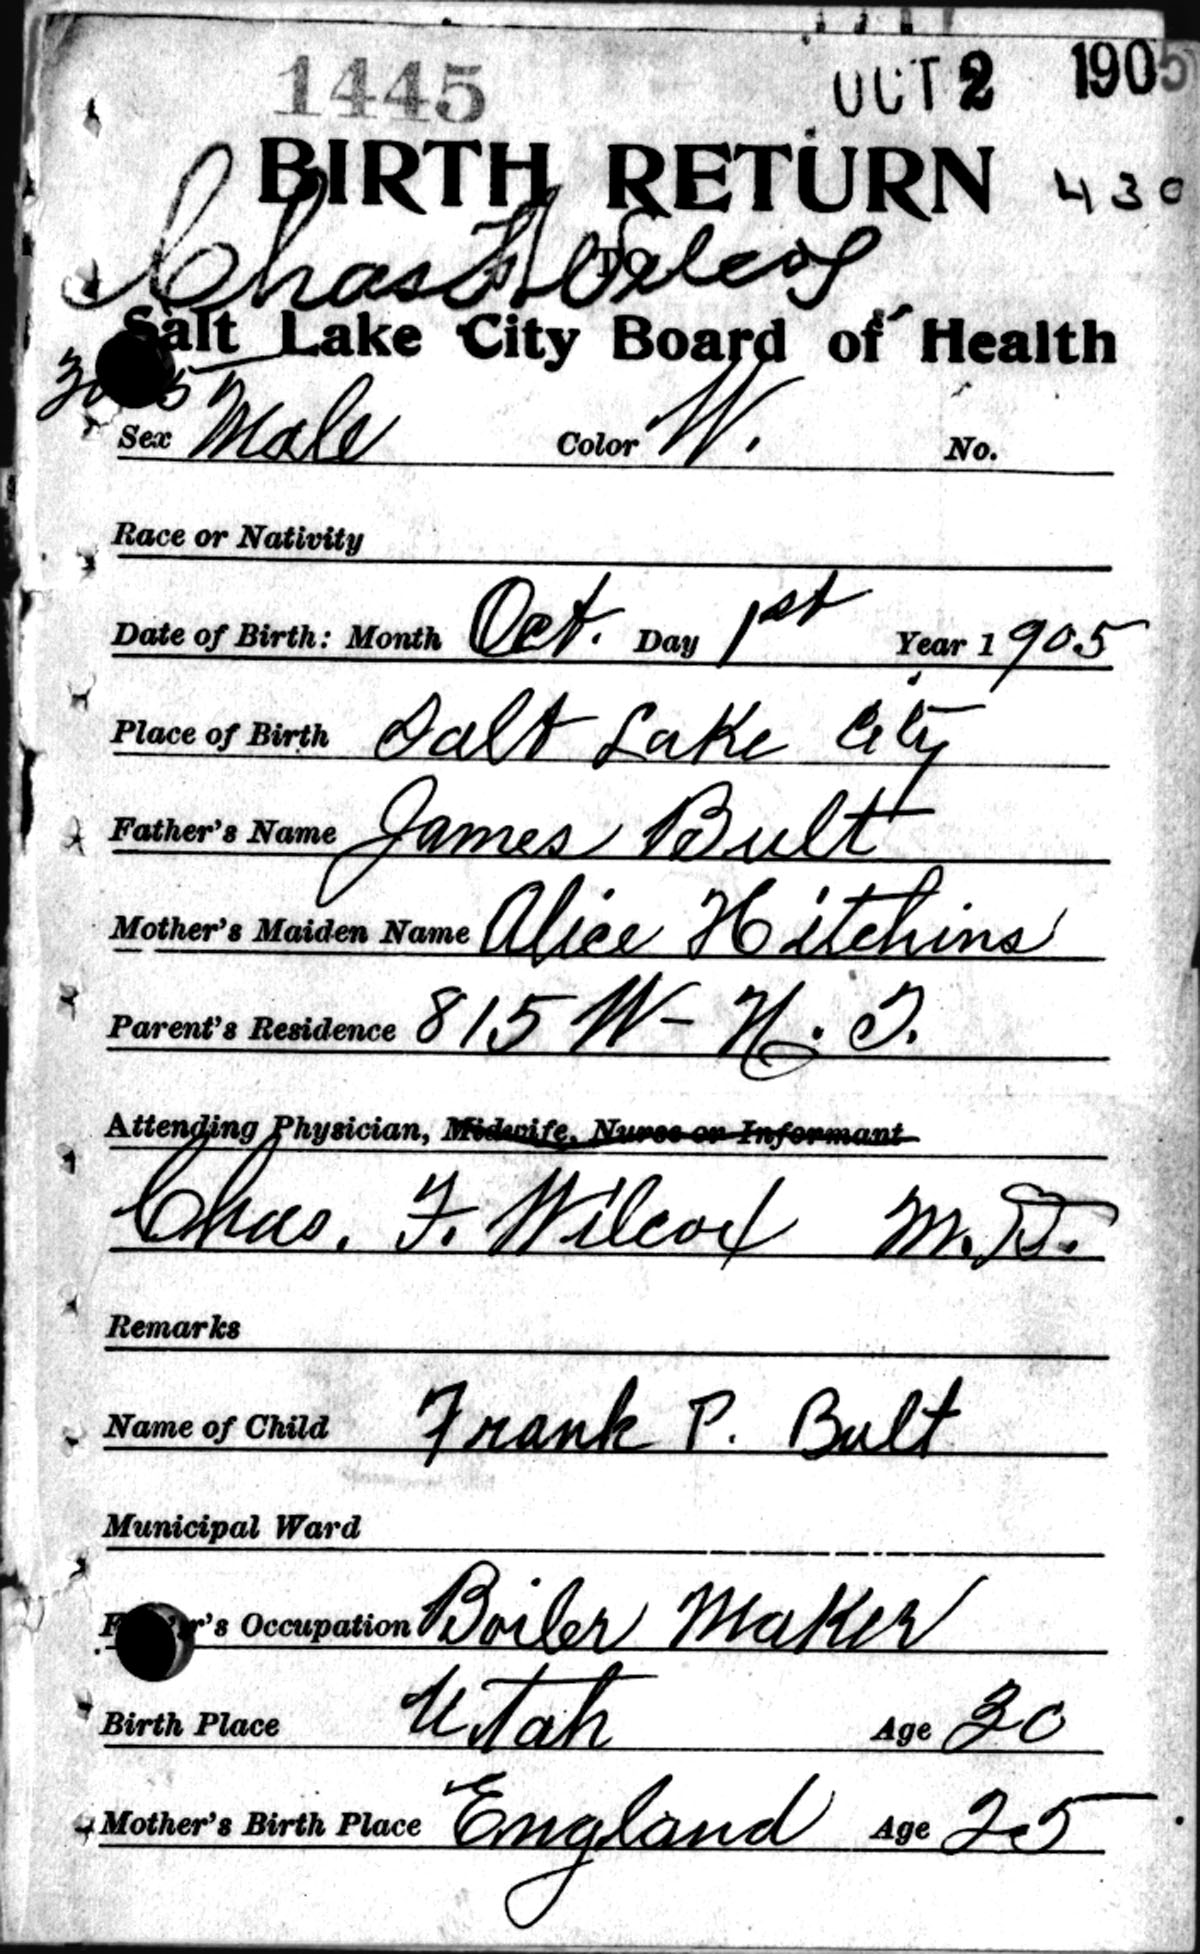 1445 OCT 2 1905
BIRTH RETURN 430
TO
Chas F Wilcox
Salt Lake City Board of Health
Sex Male Color W. No.
Race or Nativity
Date of Birth: Month Oct. Day 1st Year 1905
Place of Birth Salt Lake City
Father's Name James Bult
Mother's Maiden Name Alice Hitchins
Parent's Residence 815 W- N. T.
Attending Physician, Midwife, Nurse or Informant
Chas. F. Wilcox M.D.
Remarks
Name of Child Frank P. Bult
Municipal Ward
Father's Occupation Boiler Maker
Birth Place Utah Age 30
Mother's Birth Place England Age 25